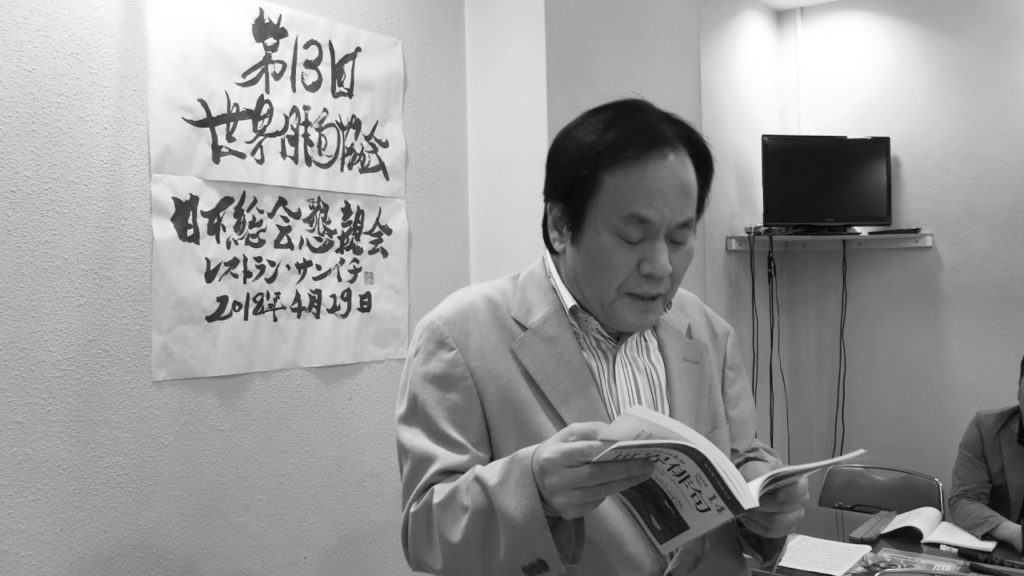 第13回
世界俳句協会
日本総会懇親会
レストラン・サンイチ
2018年4月29日
俳句
14